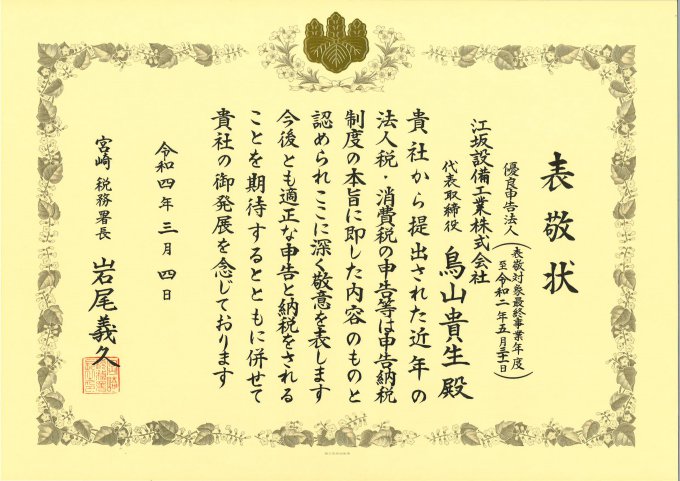 表敬状
優良申告法人
(表敬対象最終事業年度
至令和二年五月三十一日)
江坂設備工業株式会社
代表取締役 鳥山貴生殿
貴社から提出された近年の
法人税・消費税の申告等は申告納税
制度の本旨に即した内容のものと
認められここに深く敬意を表します
今後とも適正な申告と納税をされる
ことを期待するとともに併せて
貴社の御発展を念じております
令和四年三月四日
宮崎税務署長 岩尾義久